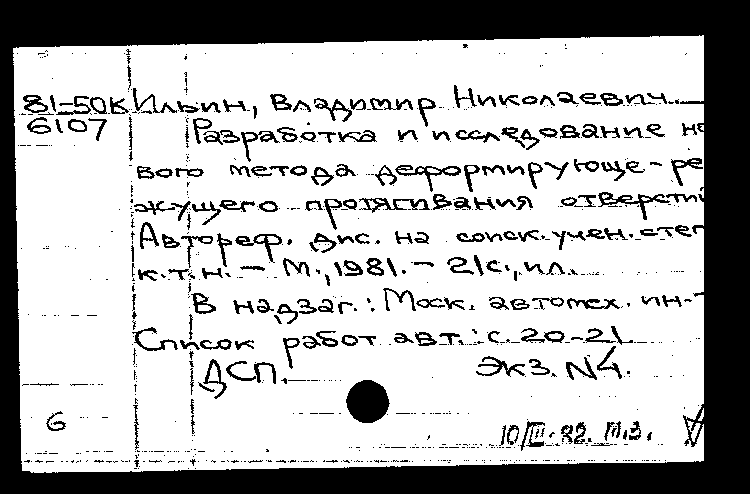 81-50к Ильин, Владимир Николаевич.
6107 Разработка и исследование но
вого метода деформирующе-ре
жущего протягивания отверстий
Автореф. дис. на соиск. учен. степ
к.т.н. - М., 1981. - 21с., ил.
В надзаг.: Моск. автомех. ин-т
Список работ авт.: с. 20-21.
ДСП. Экз. N4.
6
10/III-82. М.З.